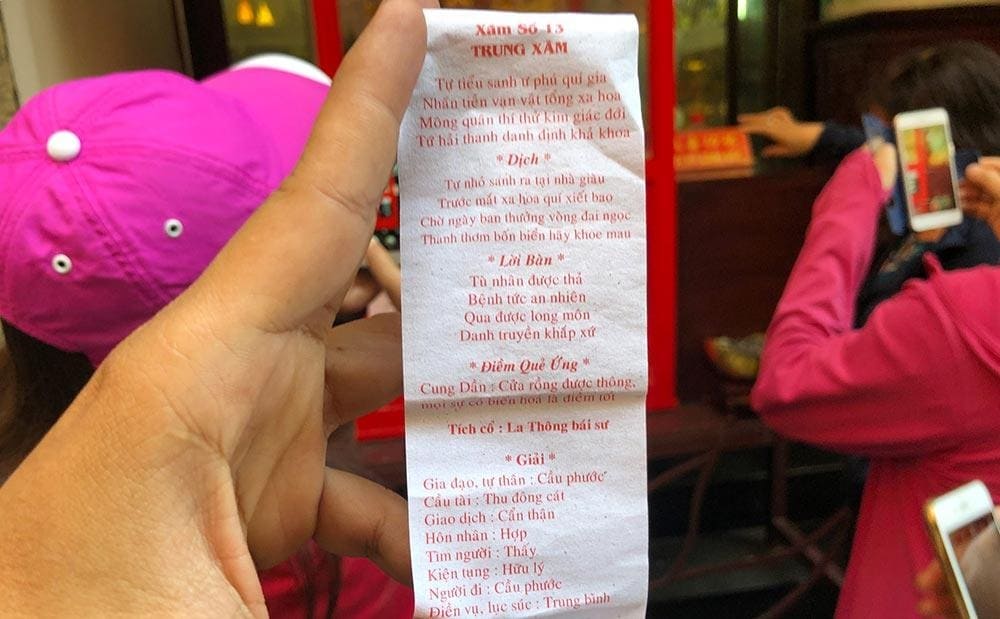 Xăm Số 13
TRUNG XĂM
Tự tiểu sanh ư phú quí gia
Nhãn tiền vạn vật tổng xa hoa
Mông quân thí thử kim giác đới
Tứ hải thanh danh định khả khoa
* Dịch *
Tự nhỏ sanh ra tại nhà giàu
Trước mắt xa hoa quí xiết bao
Chờ ngày ban thưởng vòng đai ngọc
Thanh thơm bốn biển hãy khoe mau
* Lời Bàn *
Tù nhân được thả
Bệnh tức an nhiên
Qua được long môn
Danh truyền khắp xứ
* Điềm Quẻ Ứng *
Cung Dần : Cửa rồng được thông,
mọi sự có biến hoá là điềm tốt
Tích cổ : La Thông bái sư
* Giải *
Gia đạo, tự thân : Cầu phước
Cầu tài : Thu đông cát
Giao dịch : Cẩn thận
Hôn nhân : Hợp
Tìm người : Thấy
Kiện tụng : Hữu lý
Người đi : Cầu phước
Điền vụ, lục súc : Trung bình